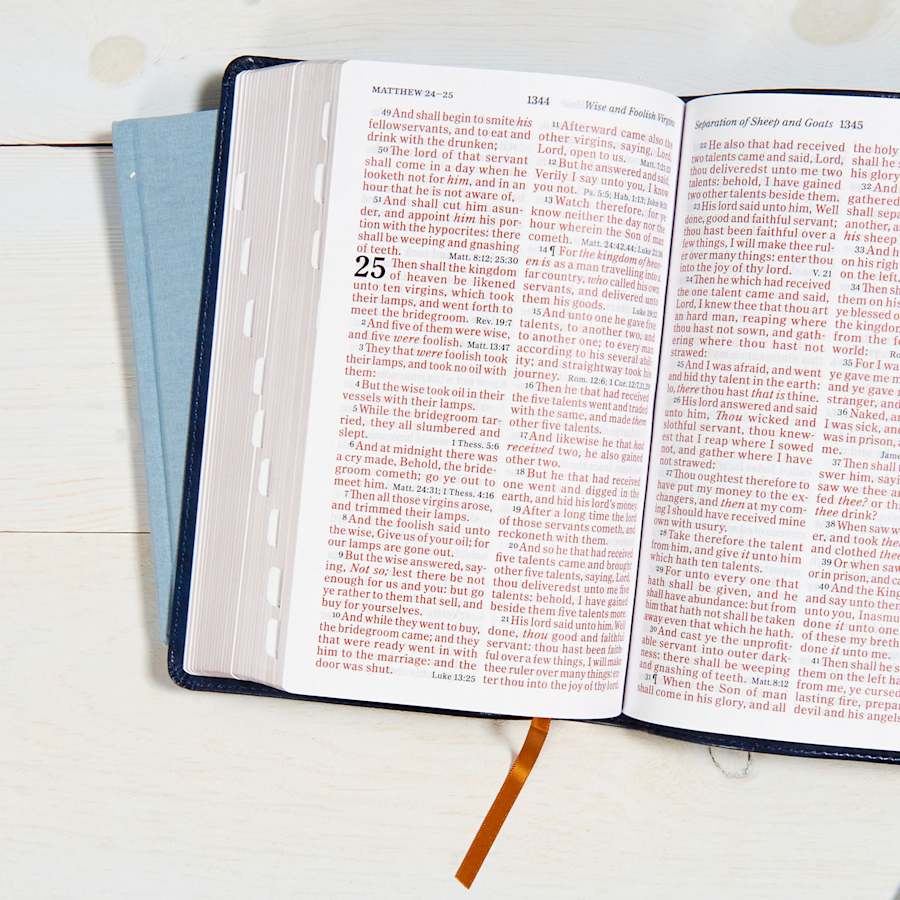 MATTHEW 24–25
1344
Wise and Foolish Virgins
49 And shall begin to smite his
fellowservants, and to eat and
drink with the drunken;
50 The lord of that servant
shall come in a day when he
looketh not for him, and in an
hour that he is not aware of,
51 And shall cut him asun-
der, and appoint him his por-
tion with the hypocrites: there
shall be weeping and gnashing
of teeth. Matt. 8:12; 25:30
25 Then shall the kingdom
of heaven be likened
unto ten virgins, which took
their lamps, and went forth to
meet the bridegroom. Rev. 19:7
2 And five of them were wise,
and five were foolish. Matt. 13:47
3 They that were foolish took
their lamps, and took no oil with
them:
4 But the wise took oil in their
vessels with their lamps.
5 While the bridegroom tar-
ried, they all slumbered and
slept. 1 Thess. 5:6
6 And at midnight there was
a cry made, Behold, the bride-
groom cometh; go ye out to
meet him. Matt. 24:31; 1 Thess. 4:16
7 Then all those virgins arose,
and trimmed their lamps.
8 And the foolish said unto
the wise, Give us of your oil; for
our lamps are gone out.
9 But the wise answered, say-
ing, Not so; lest there be not
enough for us and you: but go
ye rather to them that sell, and
buy for yourselves.
10 And while they went to buy,
the bridegroom came; and they
that were ready went in with
him to the marriage: and the
door was shut. Luke 13:25
11 Afterward came also the
other virgins, saying, Lord,
Lord, open to us. Matt. 7:21-23
12 But he answered and said,
Verily I say unto you, I know
you not. Ps. 5:5; Hab. 1:13; John 9:31
13 Watch therefore, for ye
know neither the day nor the
hour wherein the Son of man
cometh. Matt. 24:42,44; Luke 21:36
14 ¶ For the kingdom of heav-
en is as a man travelling into a
far country, who called his own
servants, and delivered unto
them his goods. Luke 19:12
15 And unto one he gave five
talents, to another two, and
to another one; to every man
according to his several abil-
ity; and straightway took his
journey. Rom. 12:6; 1 Cor. 12:7,11,29
16 Then he that had received
the five talents went and traded
with the same, and made them
other five talents.
17 And likewise he that had
received two, he also gained
other two.
18 But he that had received
one went and digged in the
earth, and hid his lord's money.
19 After a long time the lord
of those servants cometh, and
reckoneth with them.
20 And so he that had received
five talents came and brought
other five talents, saying, Lord,
thou deliveredst unto me five
talents: behold, I have gained
beside them five talents more.
21 His lord said unto him, Well
done, thou good and faithful
servant: thou hast been faith-
ful over a few things, I will make
thee ruler over many things: en-
ter thou into the joy of thy lord.
Separation of Sheep and Goats 1345
22 He also that had received
two talents came and said, Lord,
thou deliveredst unto me two
talents: behold, I have gained
two other talents beside them.
23 His lord said unto him, Well
done, good and faithful servant;
thou hast been faithful over a
few things, I will make thee rul-
er over many things: enter thou
into the joy of thy lord. V. 21
24 Then he which had received
the one talent came and said,
Lord, I knew thee that thou art
an hard man, reaping where
thou hast not sown, and gath-
ering where thou hast not
strawed:
25 And I was afraid, and went
and hid thy talent in the earth:
lo, there thou hast that is thine.
26 His lord answered and said
unto him, Thou wicked and
slothful servant, thou knew-
est that I reap where I sowed
not, and gather where I have
not strawed:
27 Thou oughtest therefore to
have put my money to the ex-
changers, and then at my com-
ing I should have received mine
own with usury.
28 Take therefore the talent
from him, and give it unto him
which hath ten talents.
29 For unto every one that
hath shall be given, and he
shall have abundance: but from
him that hath not shall be taken
away even that which he hath.
30 And cast ye the unprofit-
able servant into outer dark-
ness: there shall be weeping
and gnashing of teeth. Matt. 8:12
31 ¶ When the Son of man
shall come in his glory, and all
the holy
shall he s
his glory
32 And
gathered
shall sepa
another, a
his sheep
33 And h
on his right
on the left.
34 Then sh
them on his
ye blessed o
the kingdom
from the fo
world: Ro
35 For I wa
ye gave me m
and ye gave
stranger, and
36 Naked, an
I was sick, an
was in prison, a
me. Jame
37 Then shall
swer him, sayi
saw we thee a
fed thee? or th
thee drink?
38 When saw w
er, and took thee
and clothed thee
39 Or when saw
or in prison, and ca
40 And the King
and say unto them
unto you, Inasmu
done it unto one
of these my breth
done it unto me.
41 Then shall he s
them on the left ha
from me, ye cursed
lasting fire, prepar
devil and his angels